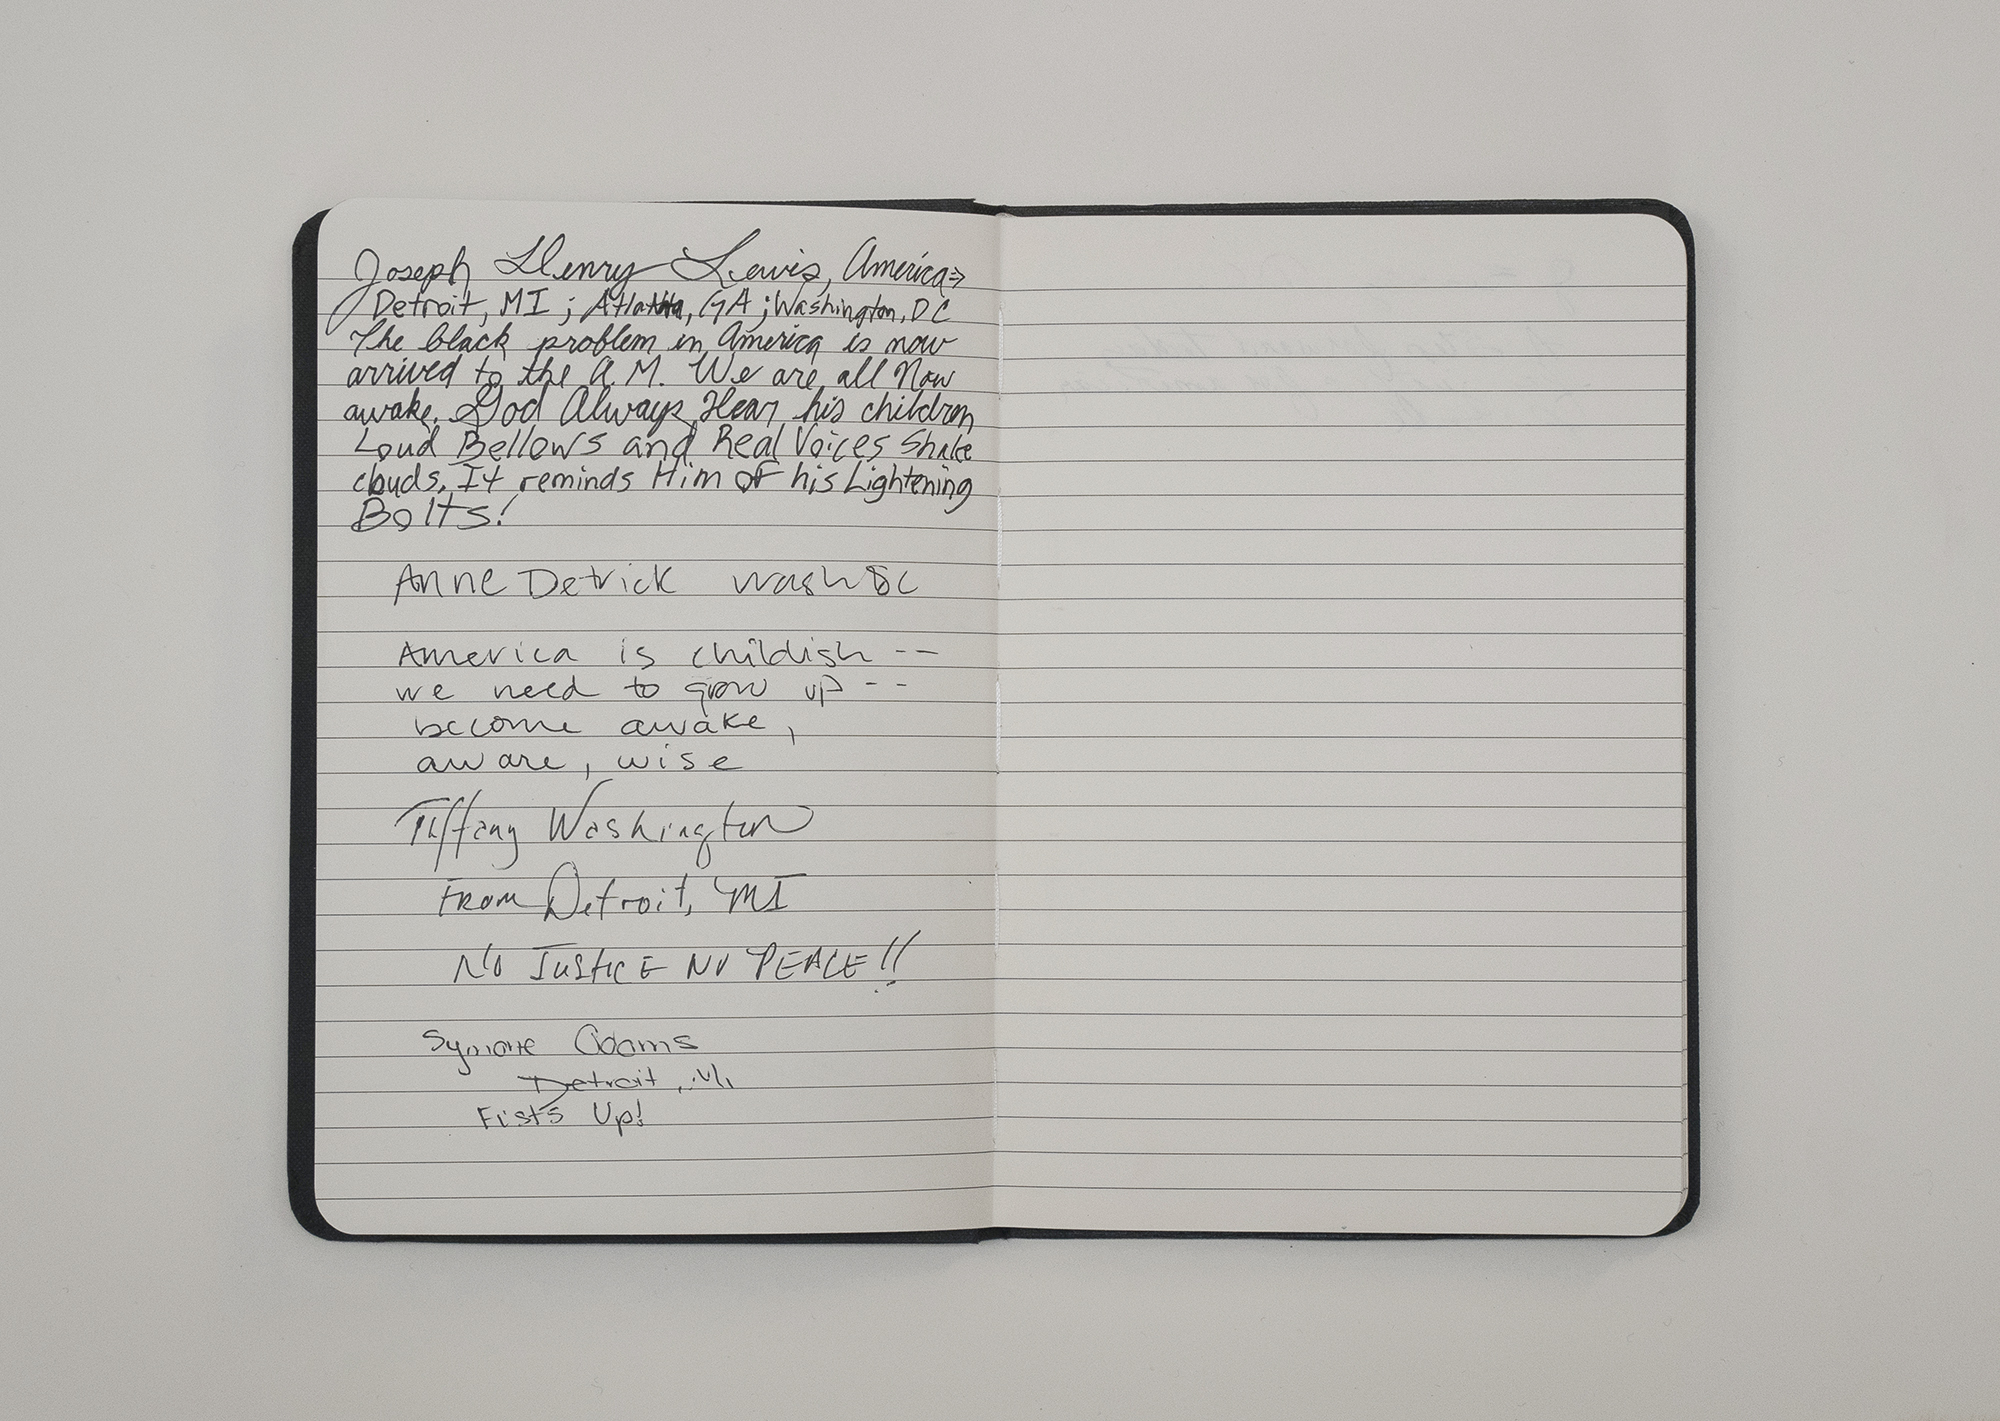 Joseph Henry Lewis, America⇒
Detroit, MI ; Atlanta, GA ; Washington, DC
The black problem in America is now
arrived to the A.M. We are all Now
awake. God Always Hear his children
Loud Bellows and Real Voices Shake
clouds. It reminds Him of his Lightening
Bolts!
Anne Detrick Wash DC
America is childish --
we need to grow up --
become awake,
aware, wise
Tiffany Washington
From Detroit, MI
No Justice No Peace!!
Symone Adams
Detroit, Mi
Fists Up!